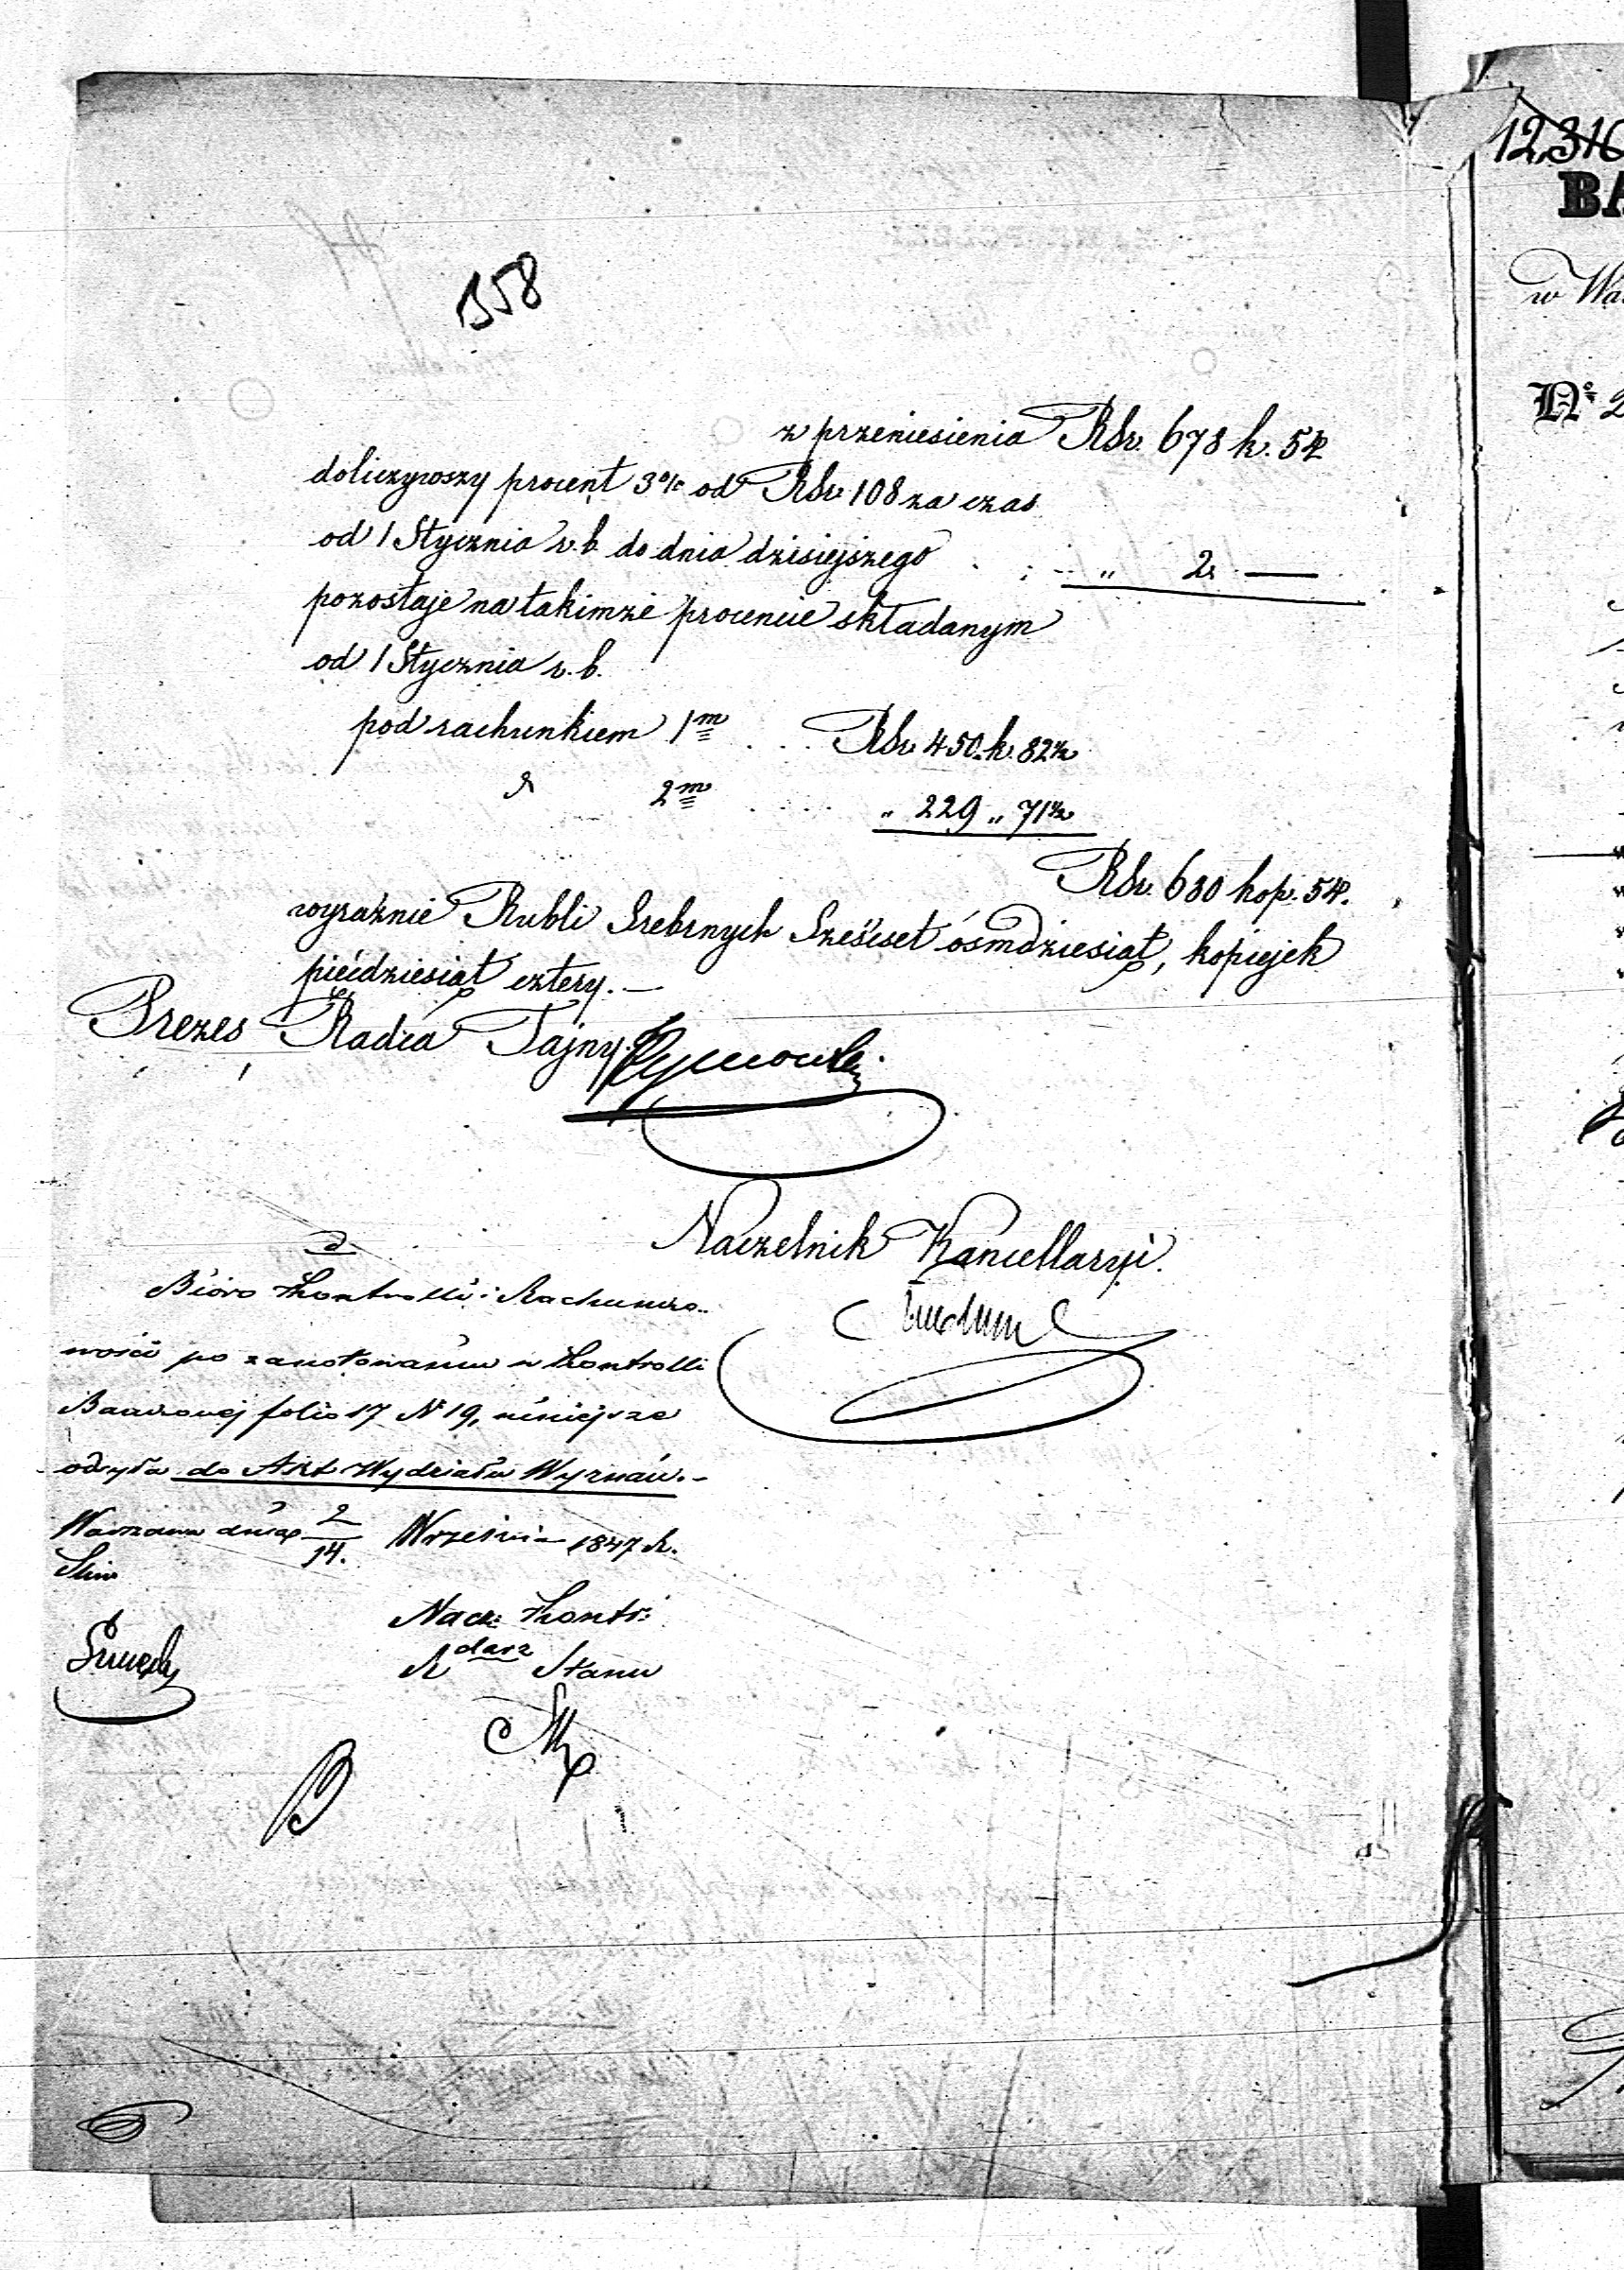 358
z przeniesienia RSr. 678 k. 54
doliczywszy procent 3% od RSr. 108 za czas
od 1 Stycznia r. b. do dnia dzisiejszego „ 2 —
pozostaje na takimże procencie składanym
od 1 Stycznia r. b.
pod rachunkiem 1m RSr. 450 k. 82½
2m „ 229 „ 71½
RSr. 680 kop. 54.
wyraźnie Rubli Srebrnych Sześćset ośmdziesiąt, kopiejek
pięćdziesiąt cztery. —
Prezes Radca Tajny
Naczelnik Kancellaryi.
Bióro Kontrolli i Rachunko-
wości po zanotowaniu w Kontrolli
folio 17 N 19, niniejsze
odsyła do Akt Wydziału Wyznań. -
Warszawa dnia 2/14. Września 1847 R.
Nacz: Kontr:
Rdarz Stanu
12,316
BA
w Wa
No 2